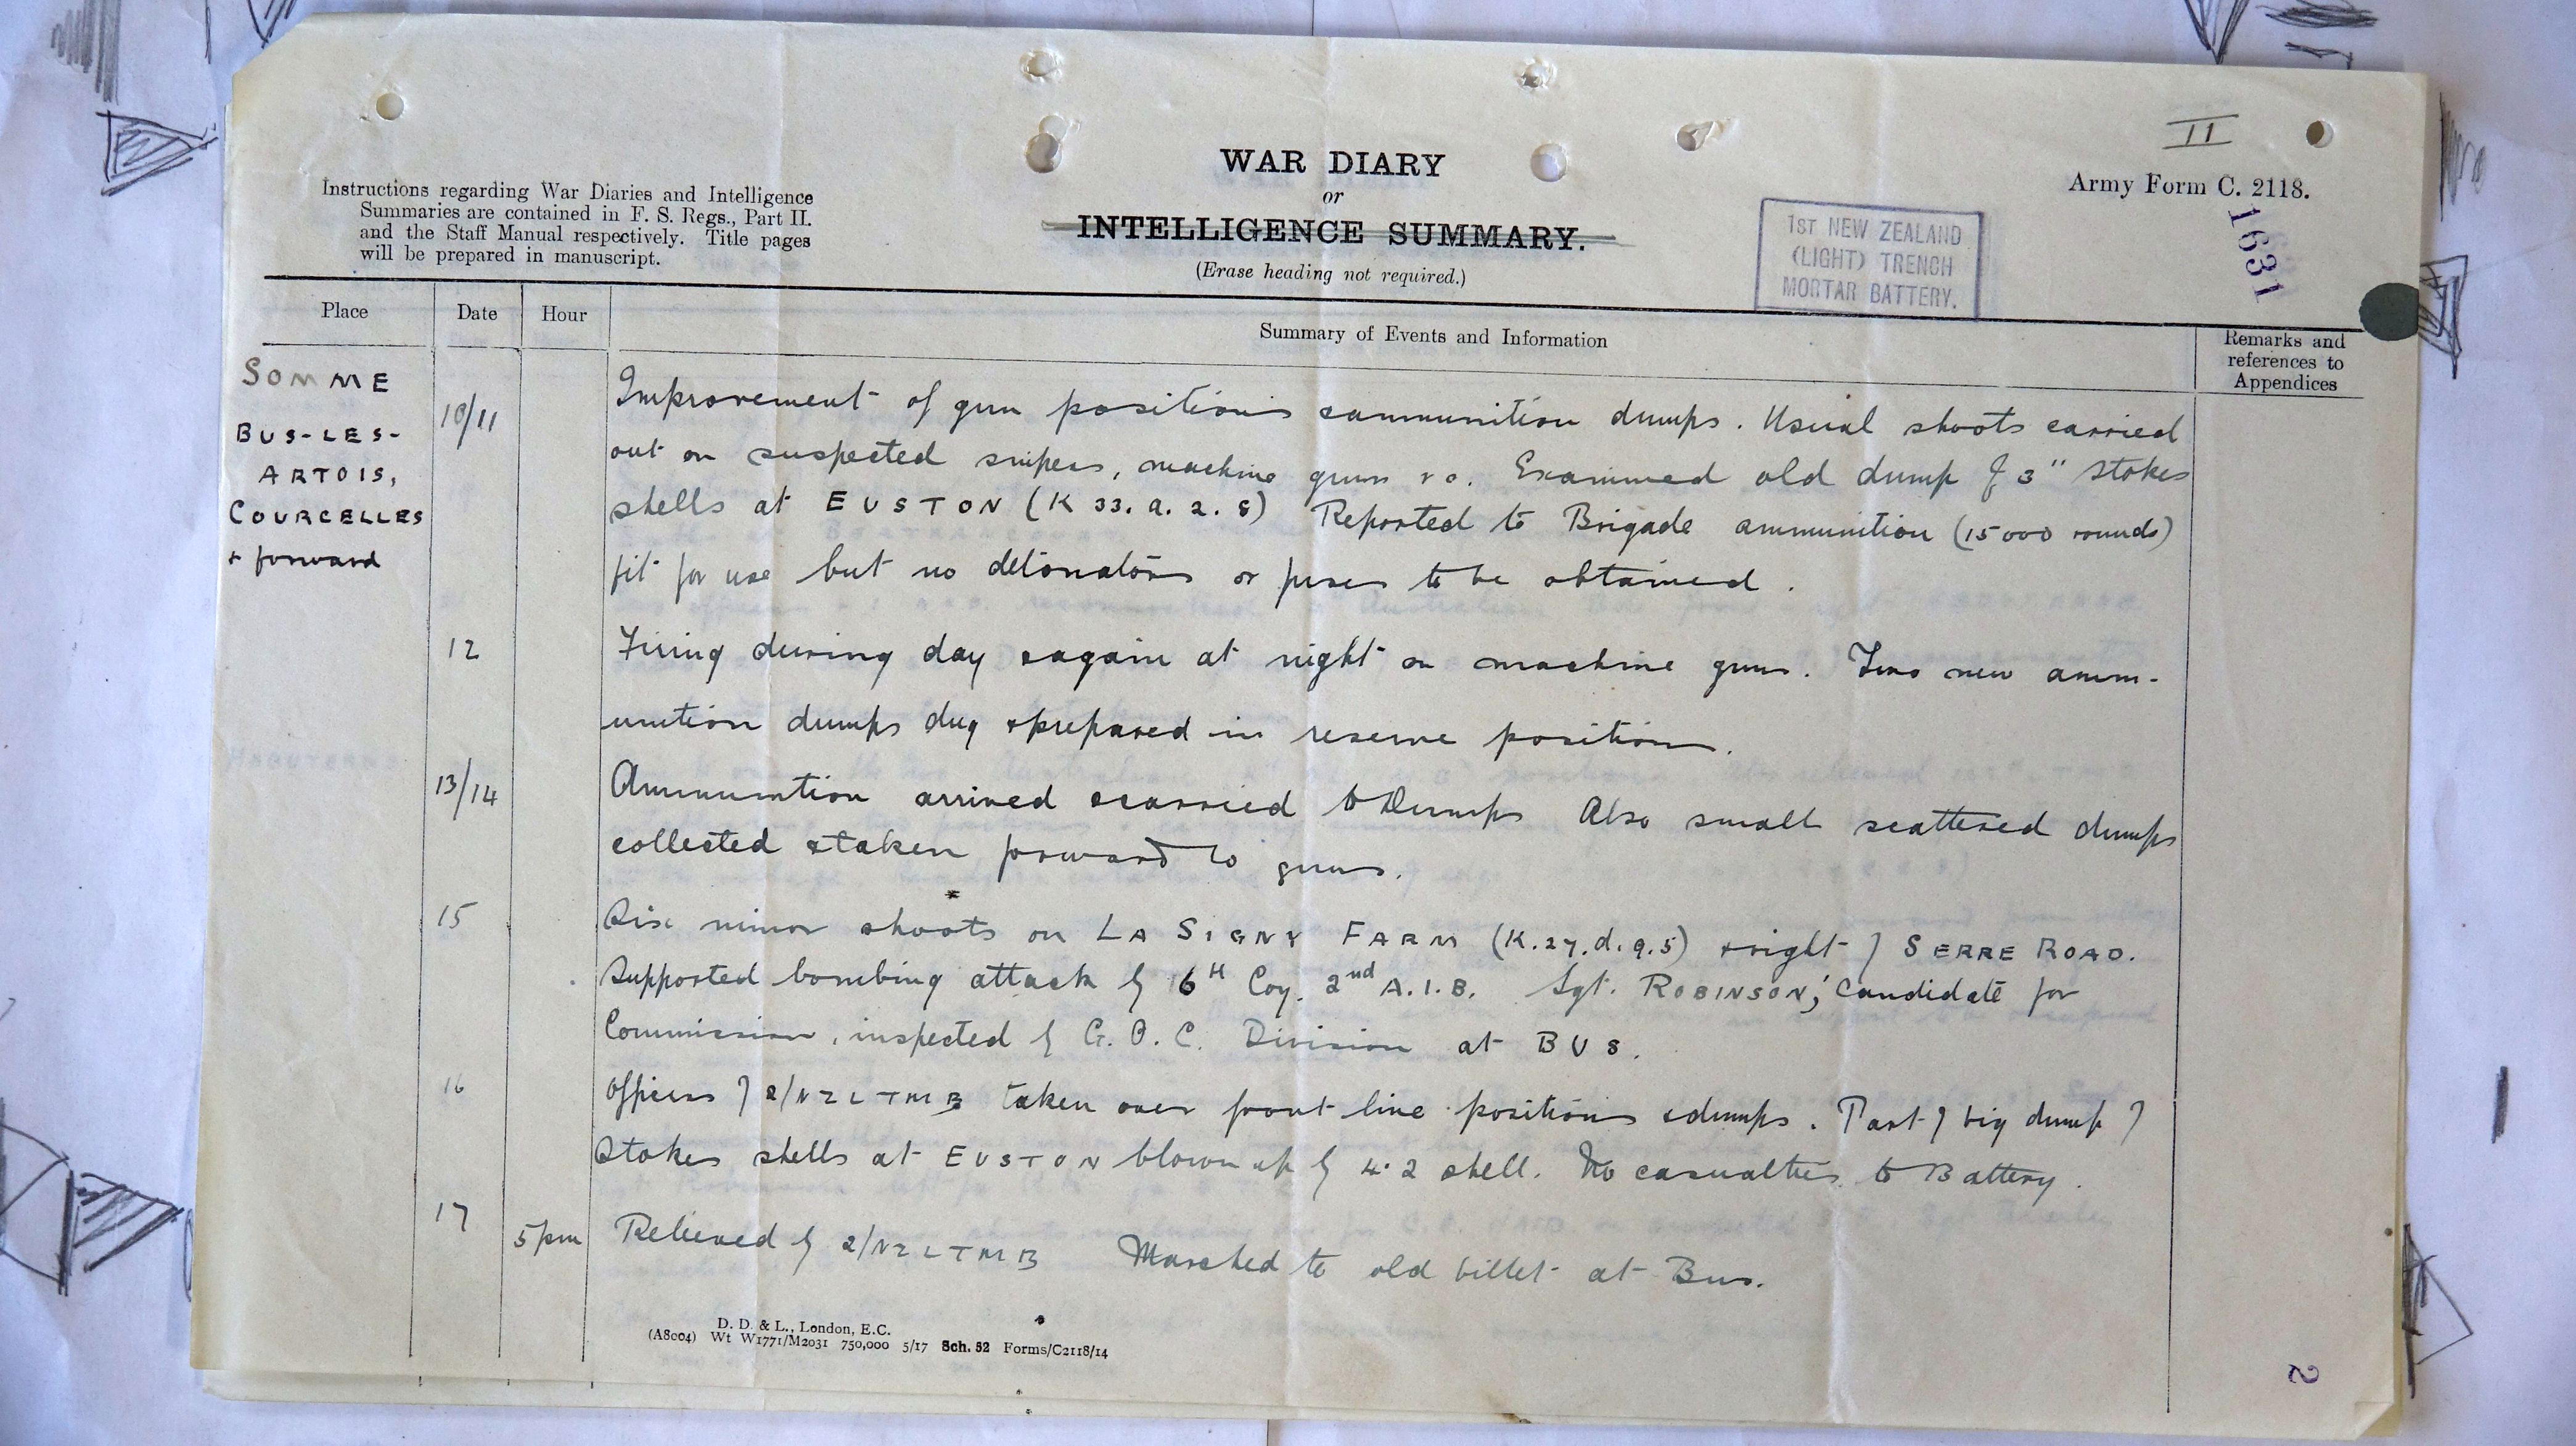 II
Army Form C. 2118.
1631
WAR DIARY
or
INTELLIGENCE SUMMARY.
(Erase heading not required.)
Instructions regarding War Diaries and Intelligence
Summaries are contained in F. S. Regs., Part II.
and the Staff Manual respectively. Title pages
will be prepared in manuscript.
1ST NEW ZEALAND
(LIGHT) TRENCH
MORTAR BATTERY.
Place
Date
Hour
Summary of Events and Information
Remarks and
references to
Appendices
SOMME
BUS-LES-
ARTOIS,
COURCELLES
+ forward
10/11
Improvement of gun positions + ammunition dumps. Usual shoots carried
out on suspected snipers, machine guns &c. Examined old dump of 3" Stokes
shells at EUSTON (K 33. a. 2. 8) Reported to Brigade ammunition (15000 rounds)
fit for use but no detonators or fuses to be obtained.
12
Firing during day + again at night on machine guns. Two new amm-
unition dumps dug + prepared in reserve position.
13/14
Ammunition arrived + carried to Dumps Also small scattered dumps
collected + taken forward to guns.
15
Six minor shoots on LA SIGNY FARM (K.27.d.9.5) + right of SERRE ROAD.
Supported bombing attack by 16th Coy. 2nd A.I.B. Sgt. ROBINSON, Candidate for
Commission, inspected by G.O.C. Division at BUS.
16
Officers of 2/NZLTMB taken over front line positions + dumps. Part of big dump of
Stokes shells at EUSTON blown up by 4.2 shell. No casualties to Battery.
17
5pm
Relieved by 2/NZLTMB Marched to old billet at Bus.
D. D. & L., London, E.C.
(A8004) Wt W1771/M2031 750,000 5/17 Sch. 52 Forms/C2118/14
2